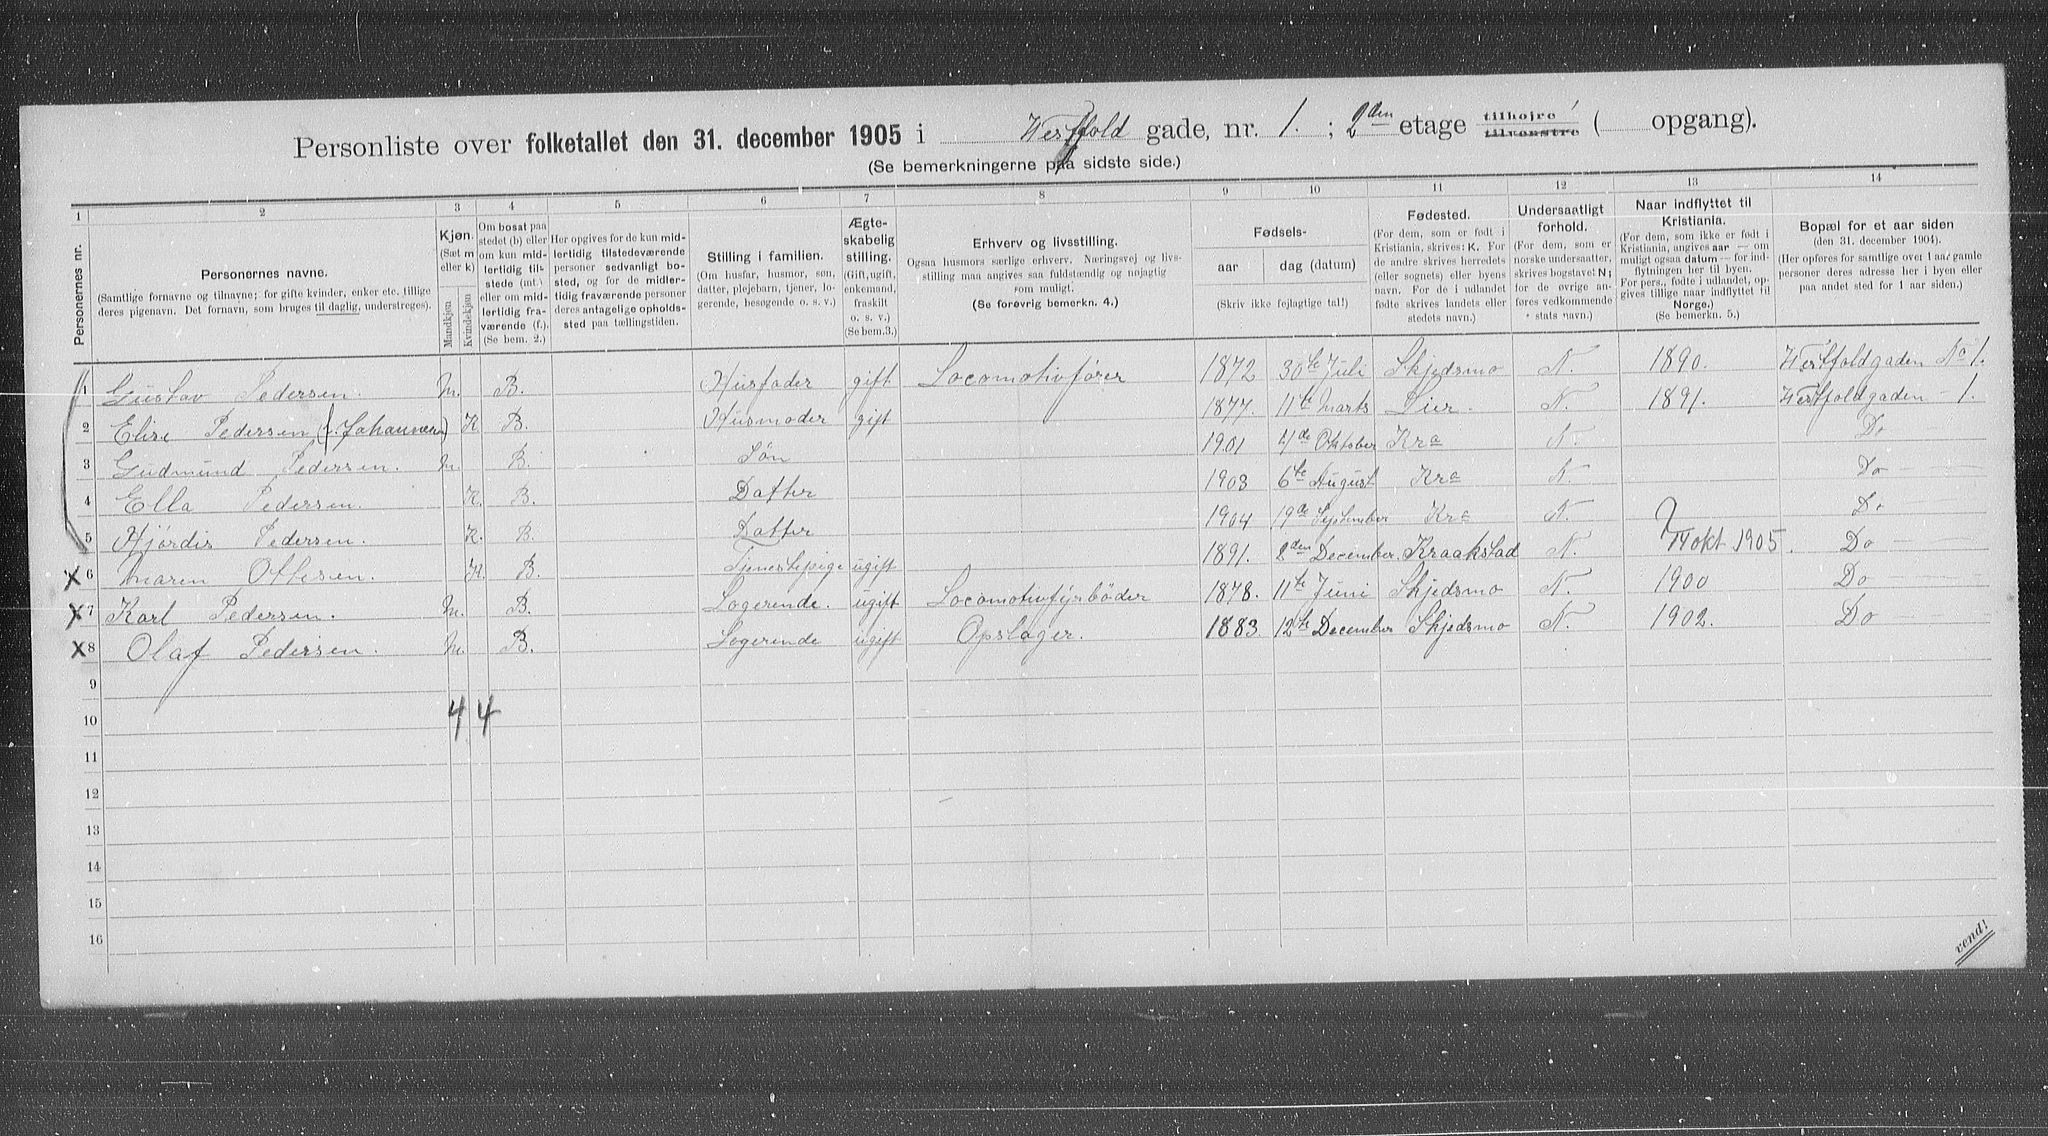 Personliste over folketallet den 31. december 1905 i Vestfold gade, nr. 1. ; 2den etage tilhøjre / tilvenstre ( opgang).
(Se bemerkningerne paa sidste side.)
1 2 3 4 5 6 7 8 9 10 11 12 13 14
Personernes nr.
Personernes navne.
(Samtlige fornavne og tilnavne; for gifte kvinder, enker etc. tillige deres pigenavn. Det fornavn, som bruges til daglig, understreges).
Kjøn.
(Sæt m eller k)
Mandkjøn
Kvindekjøn
Om bosat paa stedet (b) eller om kun midlertidig tilstede (mt.) eller om midlertidig fraværende (f.)
(Se bem. 2.)
Her opgives for de kun midlertidig tilstedeværende personer sedvanlig bosted, og for de midlertidig fraværende personer deres antagelige opholdssted paa tællingstiden.
Stilling i familien.
(Om husfar, husmor, søn, datter, plejebarn, tjener, logerende, besøgende o. s. v.)
Ægteskabelig stilling.
(Gift, ugift, enkemand, fraskilt o. s. v.)
(Se bem.3.)
Erhverv og livsstilling.
Ogsaa husmors særlige erhverv. Næringsvej og livsstilling maa angives saa fuldstændig og nøjagtig som muligt.
(Se forøvrig bemerkn. 4.)
Fødsels-
aar
dag (datum)
(Skriv ikke fejlagtige tal!)
Fødested.
(For dem, som er født i Kristiania, skrives: K. For de andre skrives herredets (eller sognets) eller byens navn. For de i udlandet fødte skrives landets eller stedets navn.)
Undersaatligt forhold.
(For dem, som er norske undersaatter, skrives bogstavet N; for de øvrige angøres vedkommende stats navn.)
Naar indflyttet til Kristiania.
(For dem, som ikke er født i Kristiania, angives aar — om muligt ogsaa datum — for indflytningen her til byen. For pers., fødte i udlandet, opgives tillige naar indflyttet til Norge.)
(Se bemerkn. 5.)
Bopæl for et aar siden
(den 31. december 1904).
(Her opføres for samtlige over 1 aar gamle personer deres adresse her i byen eller paa andet sted for 1 aar siden.)
1 Gustav Pedersen. m. B. Husfader gift Locomotivfører 1872 30te Juli Skjedsmo N. 1890. Vestfoldgaden No 1.
2 Elise Pedersen (f. Johannesen) K B. Husmoder gift 1877. 11te Marts Lier. N. 1891. Vestfoldgaden - 1.
3 Gudmund Pedersen. m. B. Søn 1901 4de Oktober Kra N. Do
4 Ella Pedersen. K. B. Datter 1903 6te August Kra N. Do
5 Hjørdis Pedersen. K. B. Datter 1904 19de September Kra N. Do
X 6 Maren Ottesen. K. B. Tjenestepige ugift 1891. 2den December. Kraakstad N. ? 17 okt 1905. Do
X 7 Karl Pedersen. m. B. Logerende. ugift Locomotivfyrbøder 1878. 11te Juni Skjedsmo N. 1900 Do
X 8 Olaf Pedersen. m. B. Logerende ugift Opslager. 1883. 12te December Skjedsmo N. 1902. Do
9
10 4 4
11
12
13
14
15
16
vend!